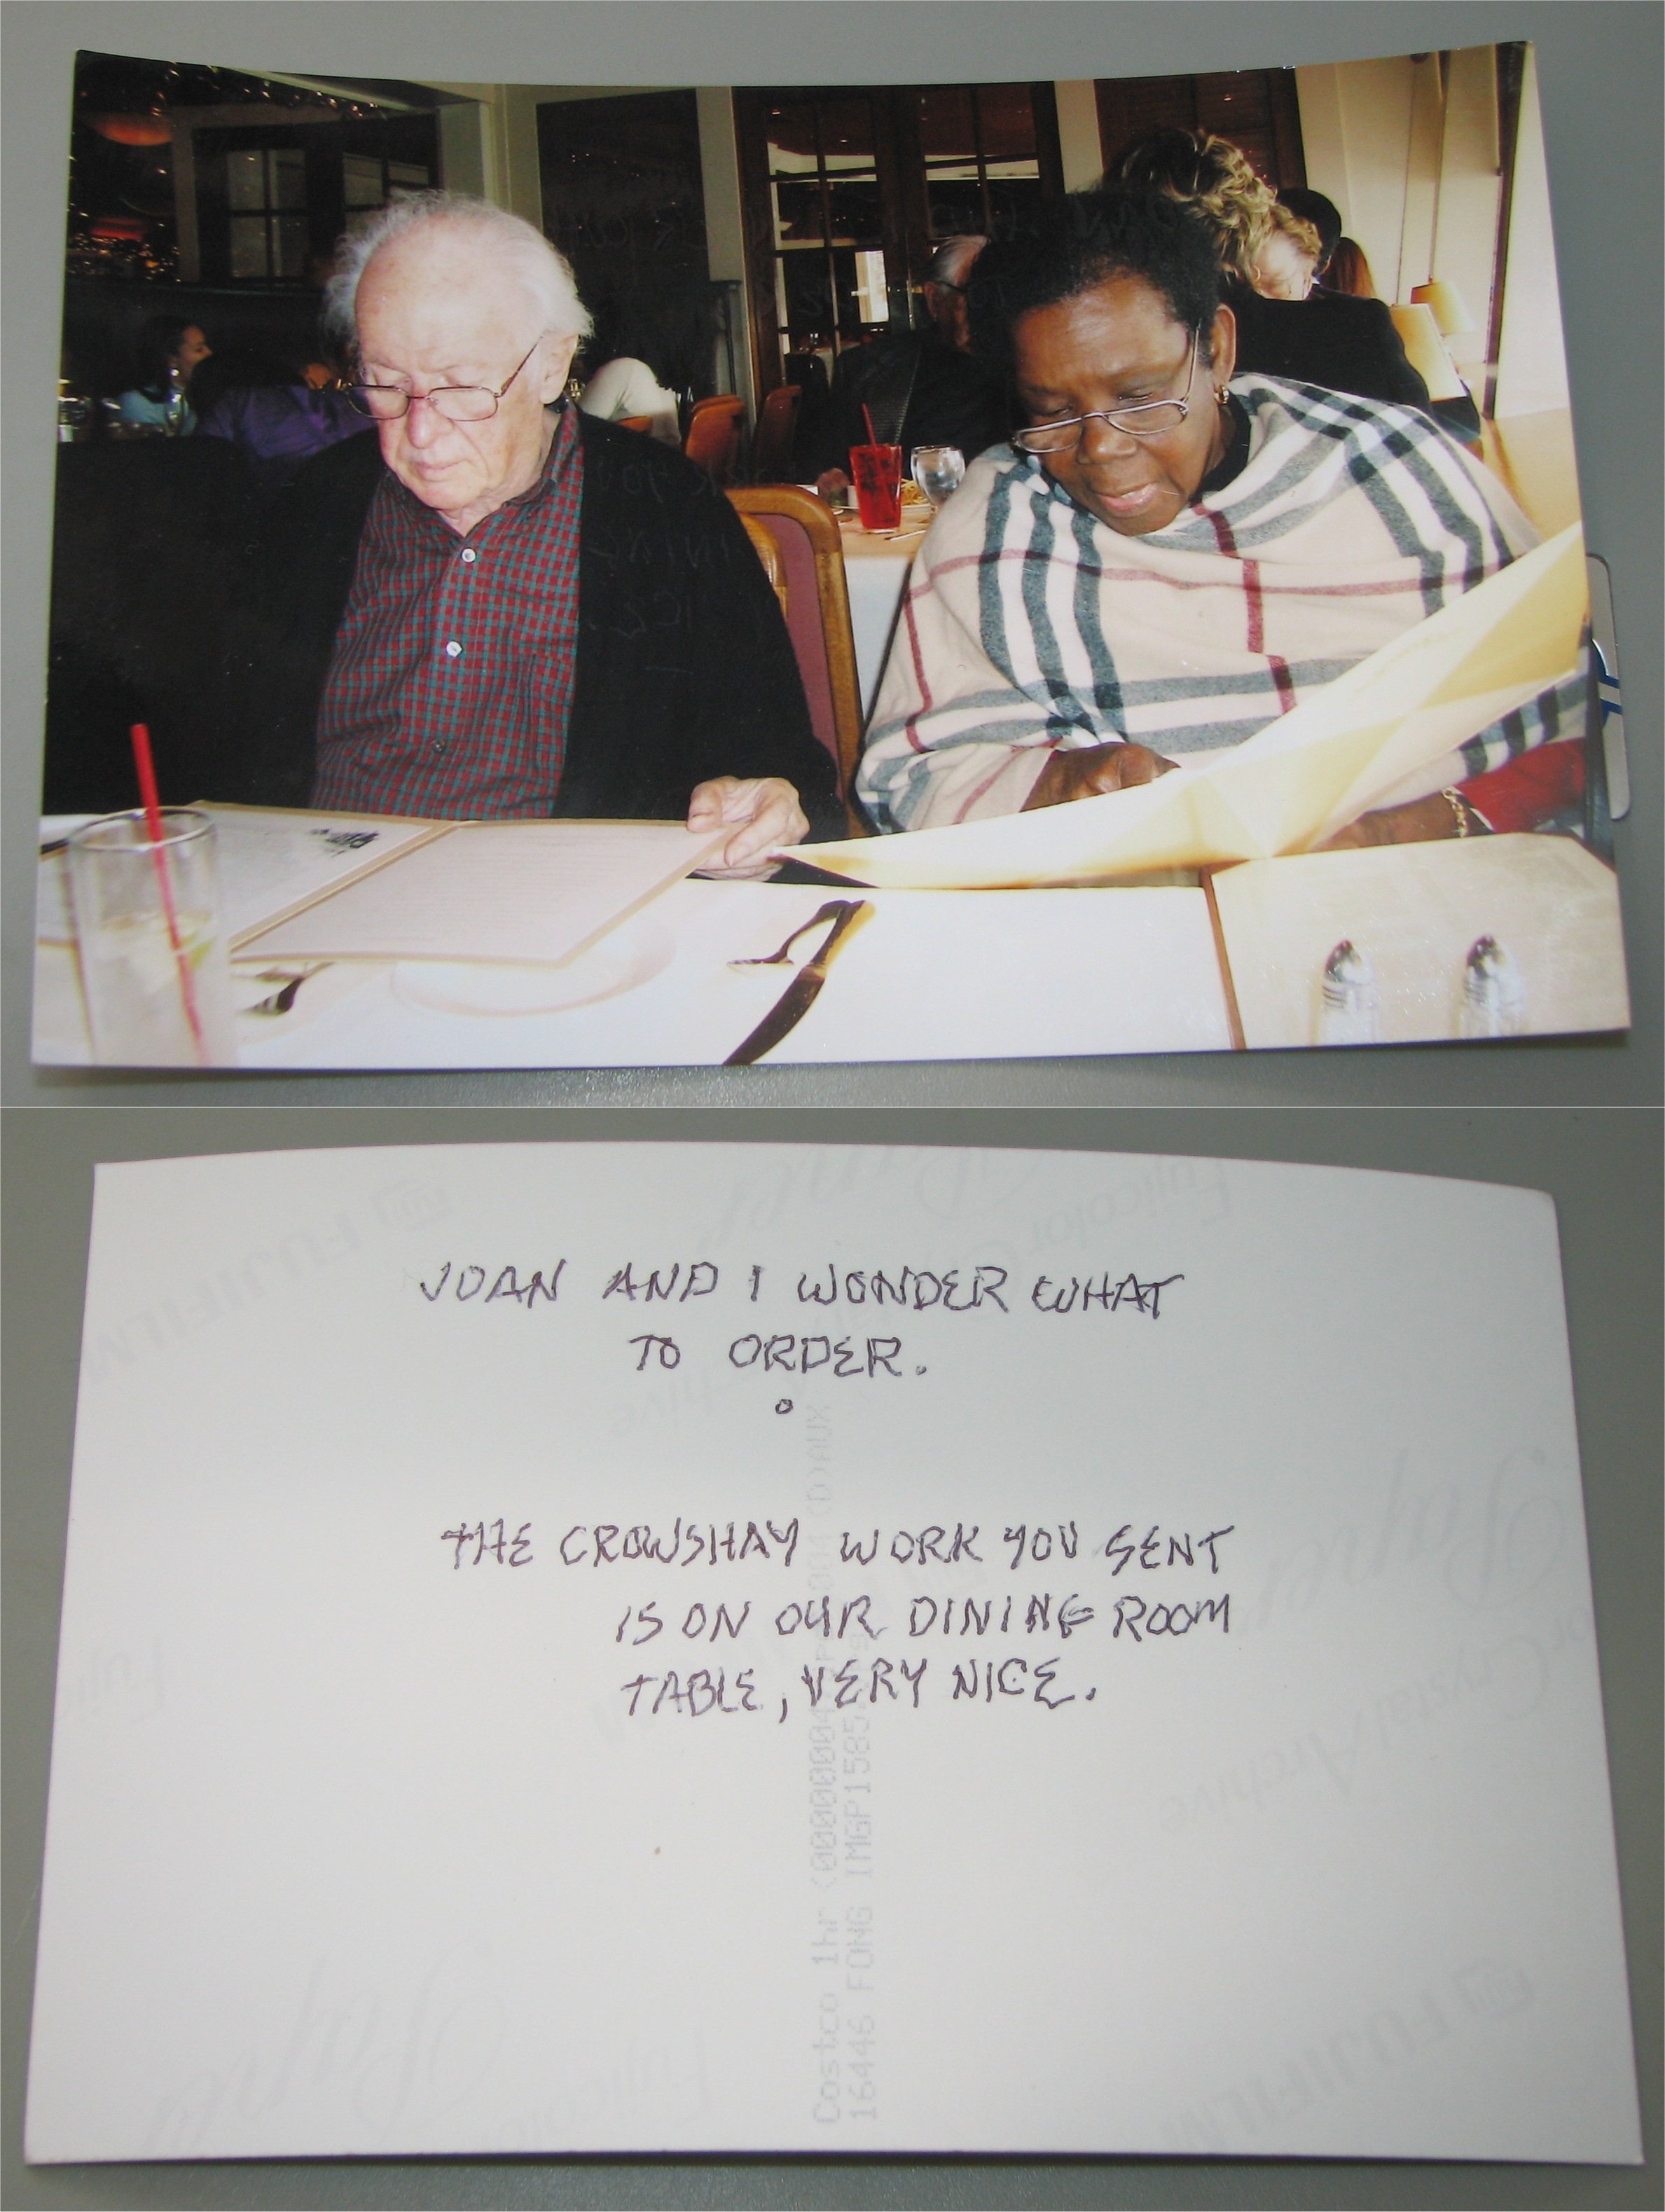 JOAN AND I WONDER WHAT
TO ORDER.
THE CROWSHAY WORK YOU SENT
IS ON OUR DINING ROOM
TABLE, VERY NICE.
FUJIFILM
Fujicolor
Paper
Crystal Archive
Costco 1hr
16446 FONG IMGP1585
FUJIFILM